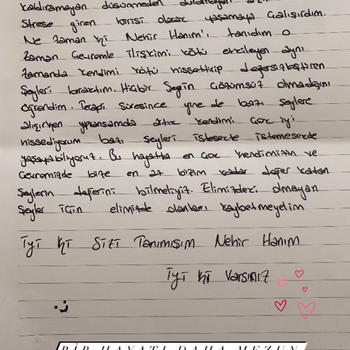 kaldıramayan düşünmeden duramayan
Strese giren birisi olarak yaşamaya çalışırdım.
Ne zaman ki Nehir Hanım'ı tanıdım o
zaman Çevremle ilişkimi kötü etkileyen aynı
zamanda kendimi kötü hissettirip değersizleştiren
şeyleri bıraktım. Hiçbir şeyin çözümsüz olmadığını
öğrendim. Terapi süresince yine de bazı şeylere
alışırken yıpransamda artık kendimi çok iyi
hissediyorum bazı şeyleri istesekte istemesekte
yaşayabiliyoruz. Bu hayatta en çok kendimizin ve
Çevremizde bize en az bizim kadar değer katan
şeylerin değerini bilmeliyiz. Elimizde olmayan
şeyler için elimizde olanları kaybetmeyelim
İyi ki Sizi Tanımışım Nehir Hanım
İyi ki Varsınız
BİR HAYATI DAHA MEZUN